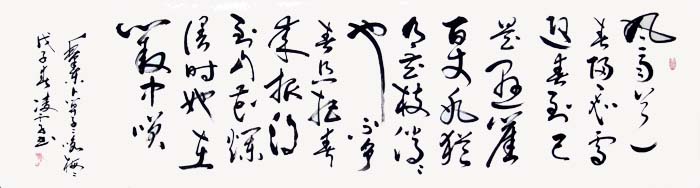 风雨送
春归飞雪
迎春到已
是悬崖
百丈冰犹
有花枝俏〻
也不争
春只把春
来报待
到山花烂
漫时她在
丛中笑
毛泽东卜算子咏梅
戊子春凌云书